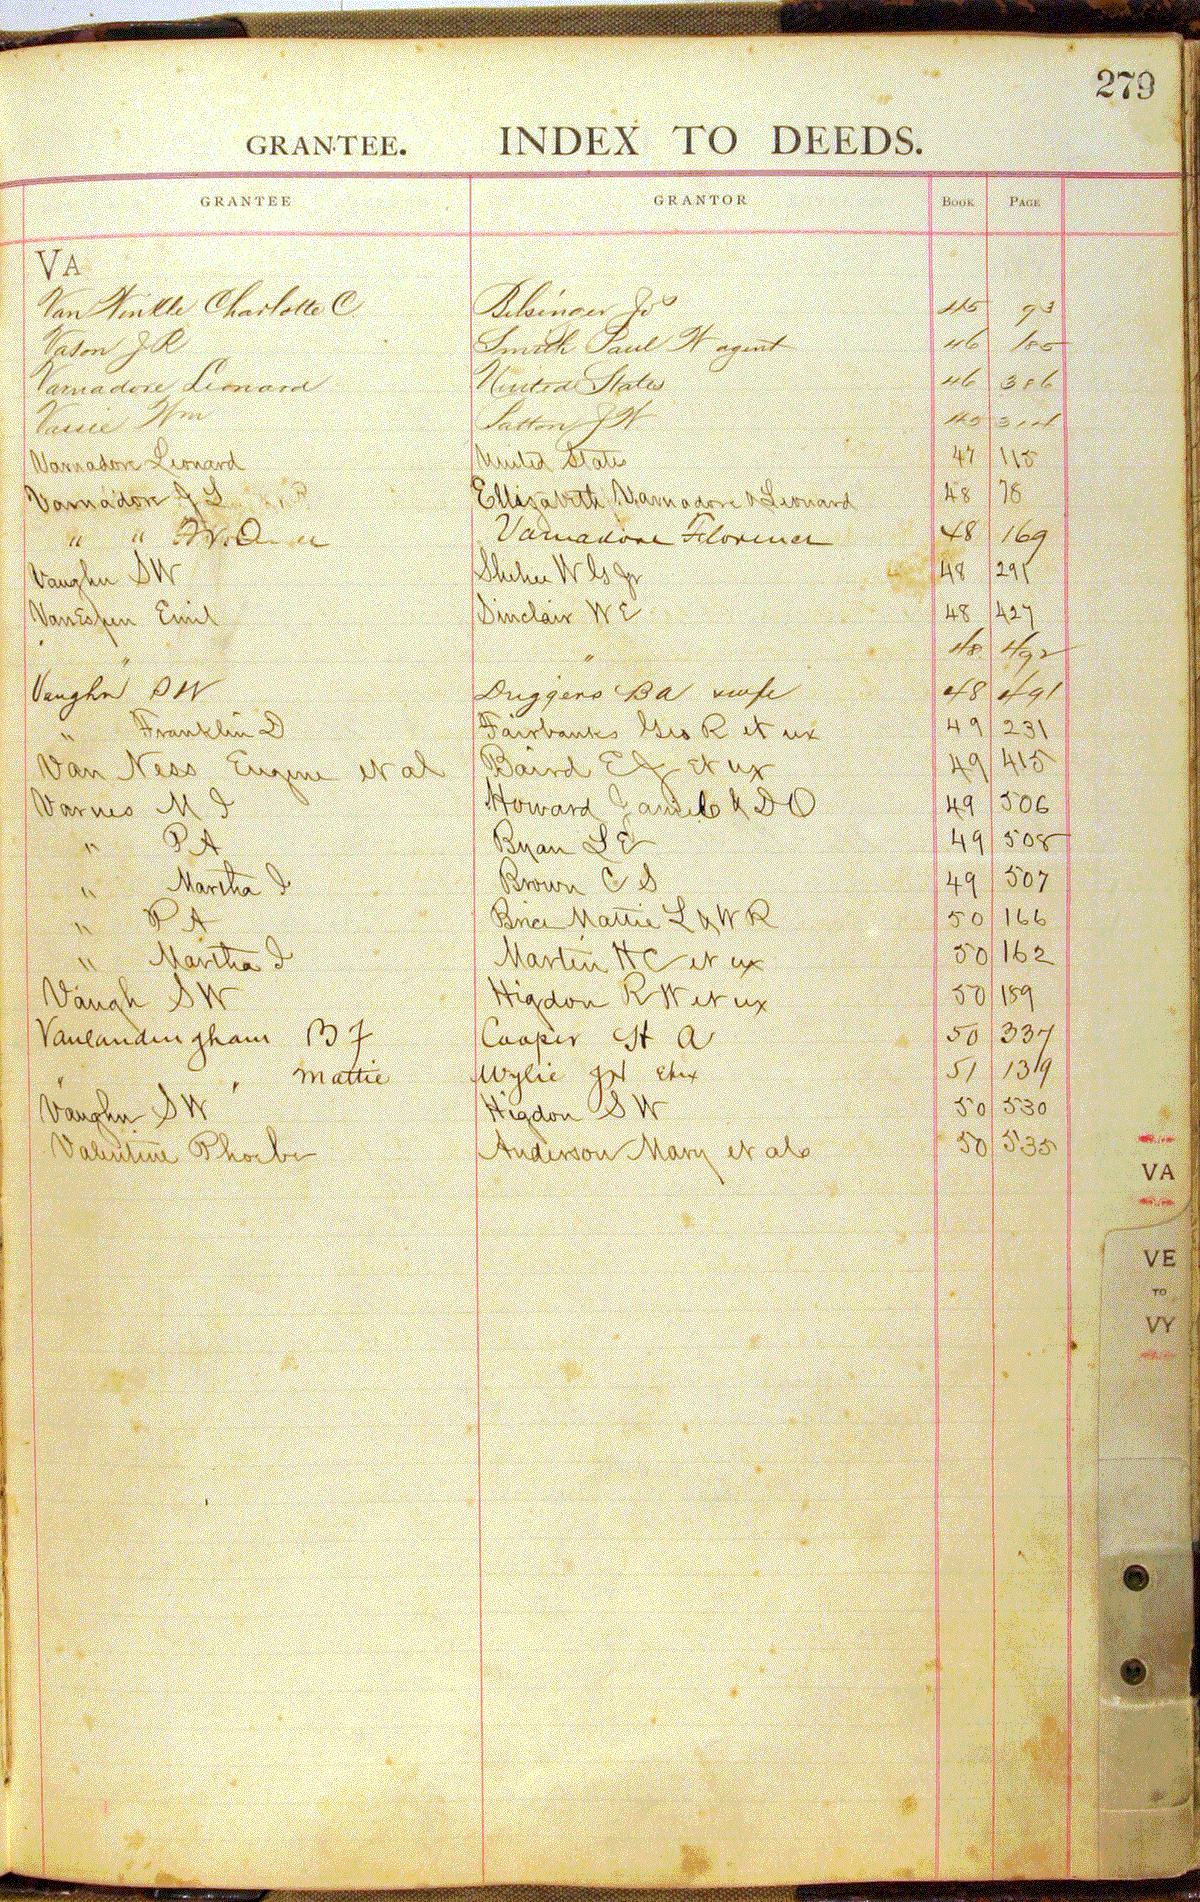 279
GRANTEE. INDEX TO DEEDS.
GRANTEE GRANTOR BOOK PAGE
VA
Van Winkle Charlotte C. Bilsinger Jos 45 93
Vason J R Smith Paul W agent 46 185
Varnadore Leonard United States 46 386
Vassie Wm Sutton J W 45 314
Varnadore Leonard United States 47 115
Varnadore J L Ellizabeth Varnadore & Leonard 48 78
" " W O Varnadore Florence 48 169
Vaughn S W W G Jr 48 291
VanEspen Emil Sinclair W E 48 427
" " " 48 492
Vaughn S W Driggers B A wife 48 491
" Franklin D Fairbanks Geo R et ux 49 231
Van Ness Eugene et al Baird E J et ux 49 415
Varnes M I Howard & D O 49 506
" P A Bryan L E 49 508
" Martha I Brown C S 49 507
" P A Brice Mattie L & W R 50 166
" Martha I Martin H C et ux 50 162
Vaugh S W Higdon R W et ux 50 189
Vanlandingham B F Cooper H A 50 337
" " Mattie Wylie J N 51 139
Vaughn S W Higdon S W 50 530
Valentine Phoebe Anderson Mary et als 50 535
VA
VE
TO
VY